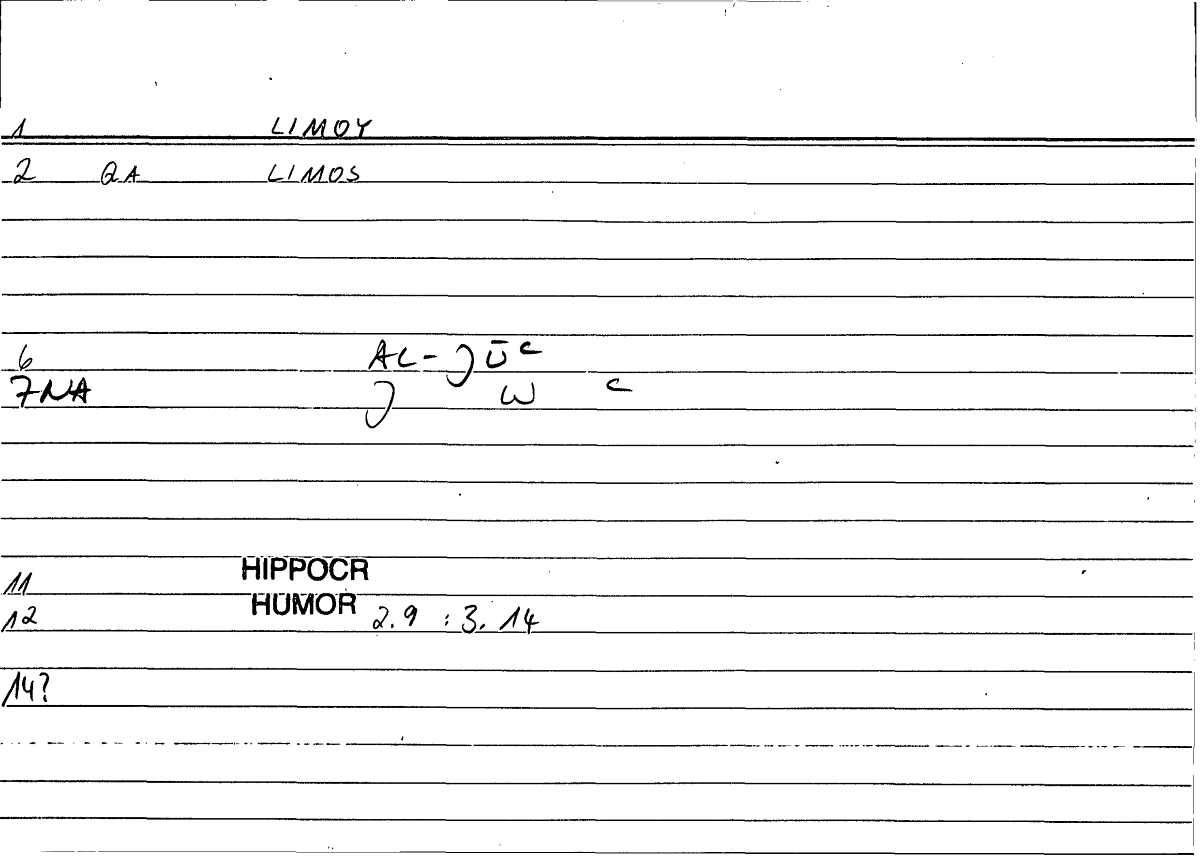 1 LIMOY
2 QA LIMOS
6 AL-JŪʿ
7NA J W ʿ
11 HIPPOCR
12 HUMOR 2.9 : 3. 14
14?